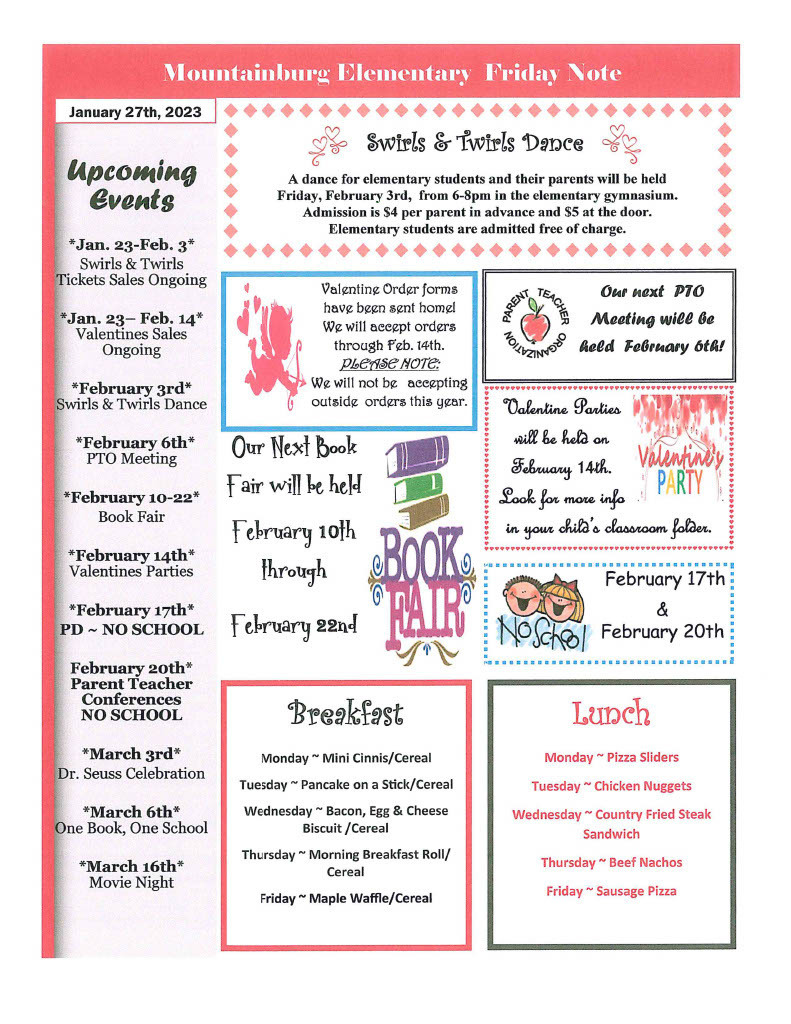 Mountainburg Elementary Friday Note
January 27th, 2023
Upcoming
Events
*Jan. 23-Feb. 3*
Swirls & Twirls
Tickets Sales Ongoing
*Jan. 23– Feb. 14*
Valentines Sales
Ongoing
*February 3rd*
Swirls & Twirls Dance
*February 6th*
PTO Meeting
*February 10-22*
Book Fair
*February 14th*
Valentines Parties
*February 17th*
PD ~ NO SCHOOL
February 20th*
Parent Teacher
Conferences
NO SCHOOL
*March 3rd*
Dr. Seuss Celebration
*March 6th*
One Book, One School
*March 16th*
Movie Night
Swirls & Twirls Dance
A dance for elementary students and their parents will be held
Friday, February 3rd, from 6-8pm in the elementary gymnasium.
Admission is $4 per parent in advance and $5 at the door.
Elementary students are admitted free of charge.
Valentine Order forms
have been sent home!
We will accept orders
through Feb. 14th.
PLEASE NOTE:
We will not be accepting
outside orders this year.
PARENT TEACHER
ORGANIZATION
Our next PTO
Meeting will be
held February 6th!
Valentine Parties
will be held on
February 14th.
Look for more info
in your child's classroom folder.
Valentine's
PARTY
Our Next Book
Fair will be held
February 10th
through
February 22nd
BOOK
FAIR
NO SCHOOL
February 17th
&
February 20th
Breakfast
Monday ~ Mini Cinnis/Cereal
Tuesday ~ Pancake on a Stick/Cereal
Wednesday ~ Bacon, Egg & Cheese
Biscuit /Cereal
Thursday ~ Morning Breakfast Roll/
Cereal
Friday ~ Maple Waffle/Cereal
Lunch
Monday ~ Pizza Sliders
Tuesday ~ Chicken Nuggets
Wednesday ~ Country Fried Steak
Sandwich
Thursday ~ Beef Nachos
Friday ~ Sausage Pizza